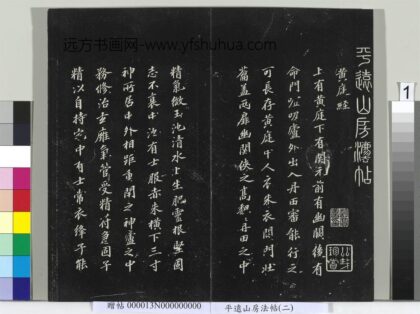 远方书画网-www.yfshuhua.com
平遠山房法帖
黄庭經
上有黄庭下有關元前有幽關後有
命門噓吸廬外出入丹田審能行之
可長存黄庭中人衣朱衣關門壯
籥蓋兩扉幽關俠之高魏丹田之中
精氣微玉池清水上生肥靈根堅固
志不衰中池有士服赤朱横下三寸
神所居中外相距重閉之神廬之中
務修治玄癰氣管受精符急固子
精以自持宅中有士常衣絳子能
贈帖 000013N000000000
平遠山房法帖(二)